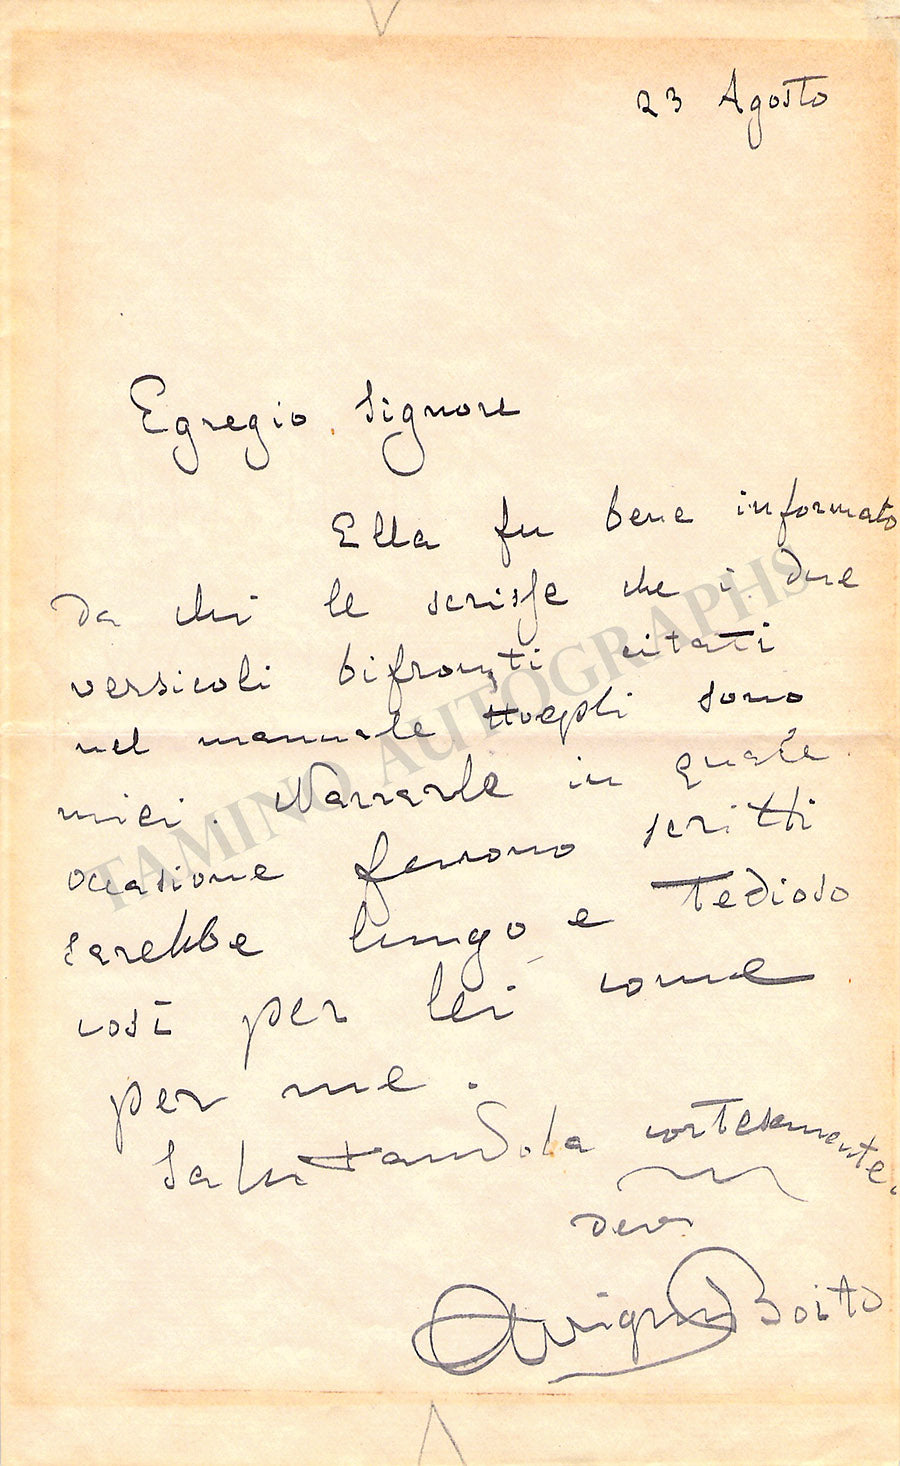 23 Agosto
Egregio Signore
Ella fu bene informato
da chi le scrisse che i due
versicoli bifronti citati
nel manuale Hoepli sono
miei. Narrarle in quale
occasione furono scritti
sarebbe lungo e tedioso
così per lei come
per me.
Salutandola cortesemente.
dev
Arrigo Boito
TAMINO AUTOGRAPHS